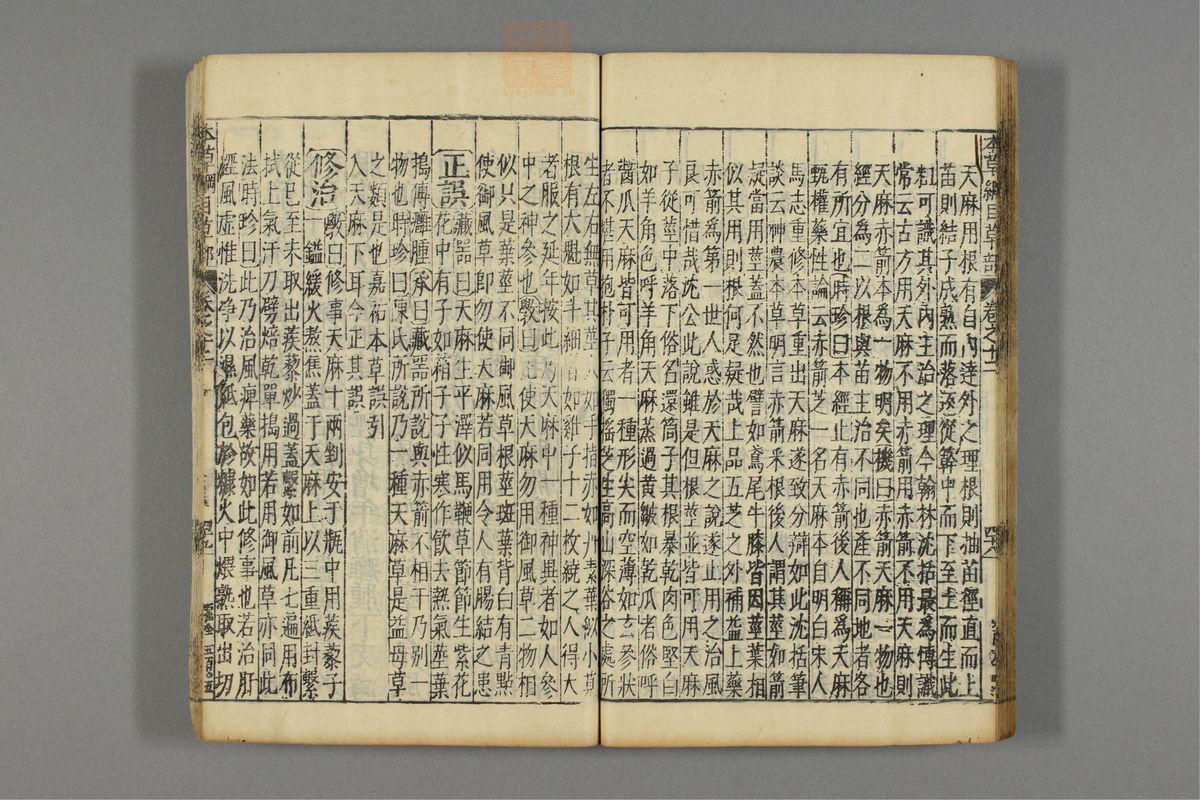 本草綱目草部 卷之十二
天麻用根有自內達外之理根則抽苗徑直而上
苗則結子成熟而落返從簳中而下至土而生此
粗可識其外內主治之理今翰林沈括最為博識
常云古方用天麻不用赤箭用赤箭不用天麻則
天麻赤箭本為一物明矣機曰赤箭天麻一物也
經分為二以根與苗主治不同也產不同地者各
有所宜也時珍曰本經止有赤箭後人稱為天麻
甄權藥性論云赤箭芝一名天麻本自明白宋人
馬志重修本草重出天麻遂致分辯如此沈括筆
談云神農本草明言赤箭采根後人謂其莖如箭
疑當用莖蓋不然也譬如鳶尾牛膝皆因莖葉相
似其用則根何足疑哉上品五芝之外補益上藥
赤箭為第一世人惑於天麻之說遂止用之治風
良可惜哉沈公此說雖是但根莖並皆可用天麻
子從莖中落下俗名還筒子其根暴乾肉色堅白
如羊角色呼羊角天麻蒸過黃皺如乾瓜者俗呼
醬瓜天麻皆可用者一種形尖而空薄如玄參狀
者不堪用抱朴子云獨搖芝生高山深谷之處所
生左右無草其莖大如手指赤如丹素葉似小莧
根有大魁如斗細者如雞子十二枚繞之人得大
者服之延年按此乃天麻中一種神異者如人參
中之神參也斅曰凡使天麻勿用御風草二物相
似只是葉莖不同御風草根莖斑葉背白有青點
使御風草即勿使天麻若同用令人有腸結之患
正誤藏器曰天麻生平澤似馬鞭草節節生紫花
花中有子如葙子子性寒作飲去熱氣莖葉
搗傅癰腫承曰藏器所說與赤箭不相干乃別一
物也時珍曰陳氏所說乃一種天麻草是益母草
之類是也嘉祐本草誤引
入天麻下耳今正其誤
修治斅曰修事天麻十兩剉安于瓶中用蒺藜子
一鎰緩火熬焦蓋于天麻上以三重紙封繫
從巳至未取出蒺藜炒過蓋繫如前凡七遍用布
拭上氣汗刀劈焙乾單搗用若用御風草亦同此
法時珍曰此乃治風痺藥故如此修事也若治肝
經風虛惟洗淨以濕紙包於糠火中煨熟取出切
本草綱目草部 卷之十二